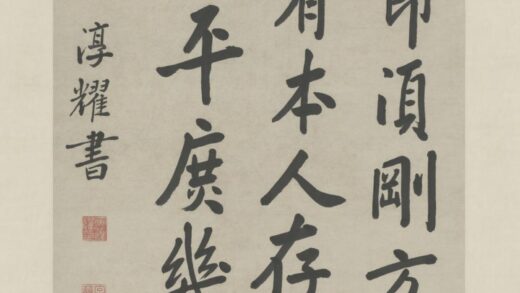 須剛方
有本人存
平庶幾
淳耀書